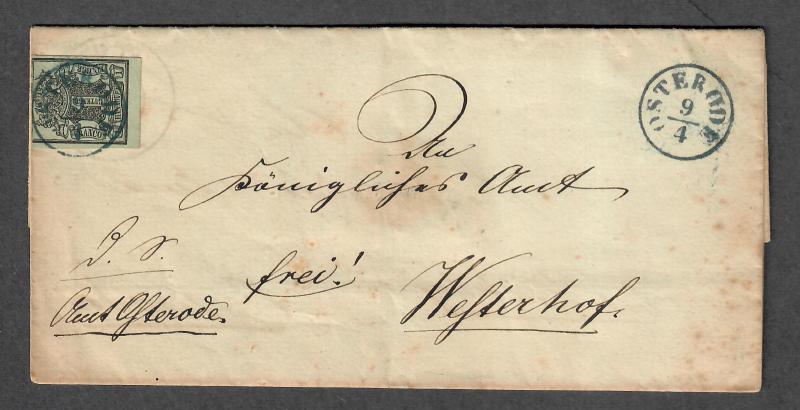 OSTERODE
9
4
An
Königliches Amt
D. S.
frei!
Amt Osterode.
Westerhof.